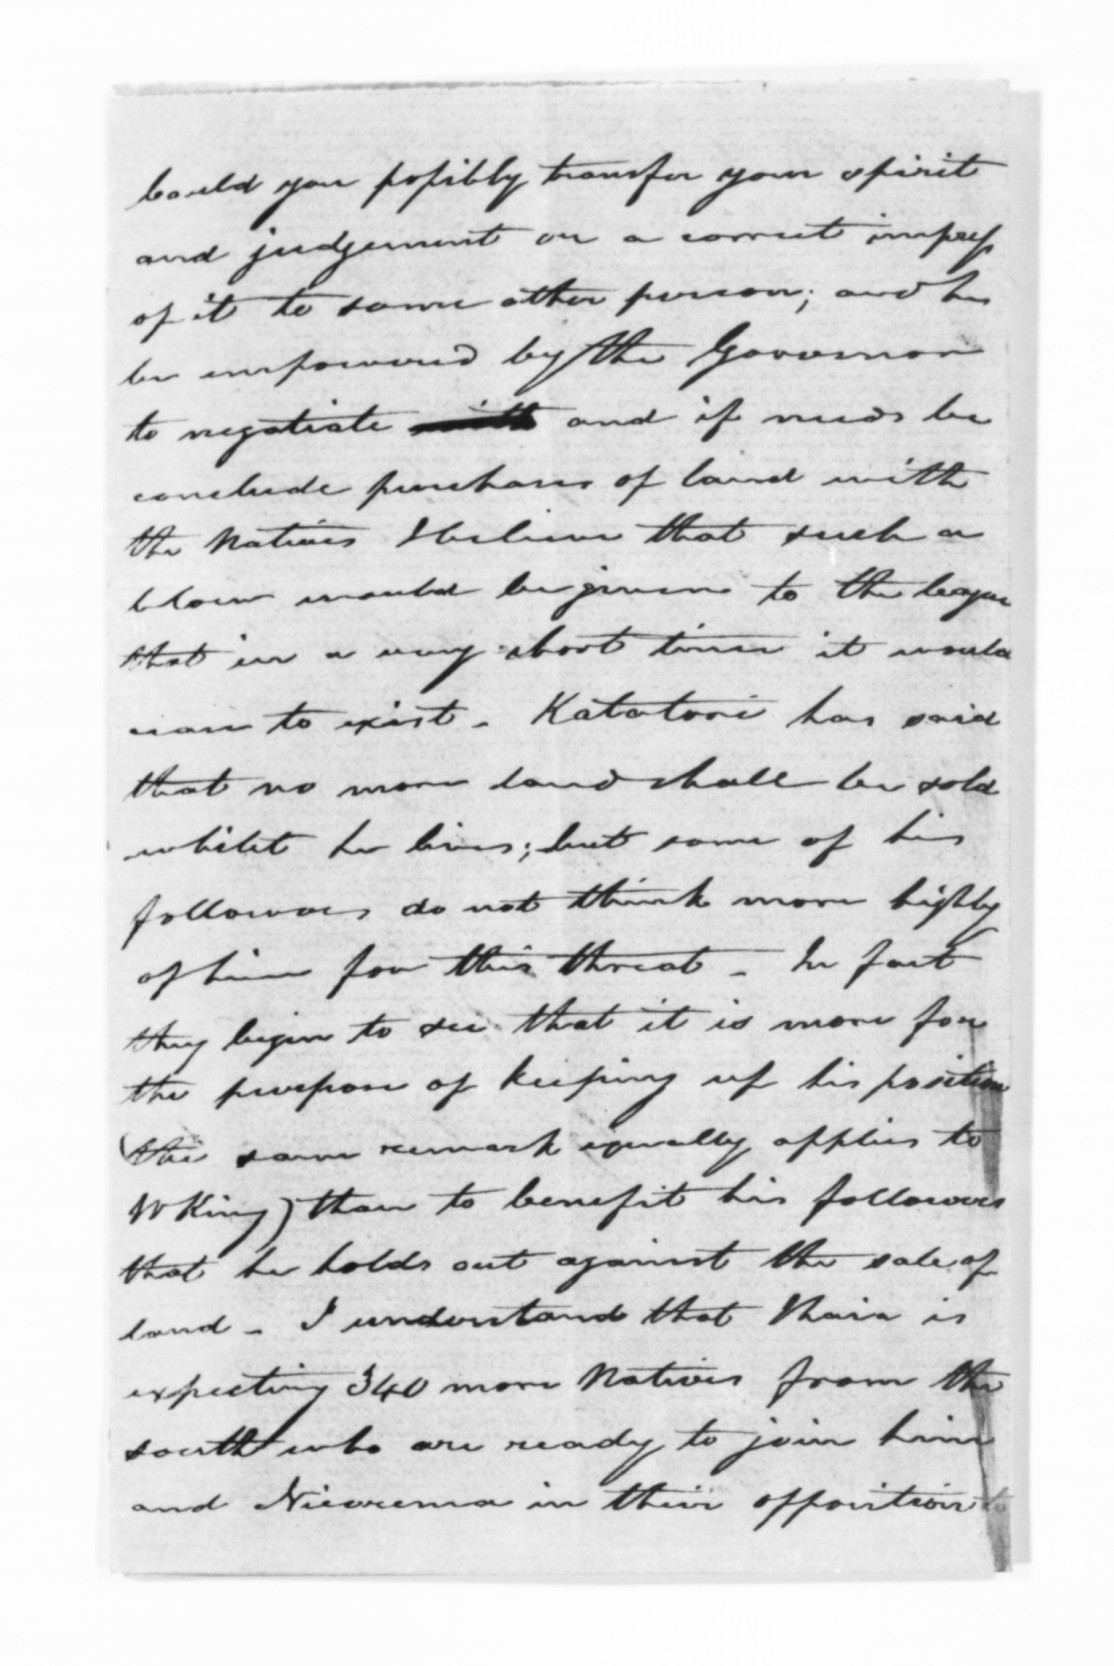 Could you possibly transfer your spirit
and judgement or a correct impress
of it to some other person; and he
be empowered by the Governor
to negotiate with and if needs be
conclude purchases of land with
the Natives I believe that such a
blow would be given to the league
that in a very short time it would
cease to exist. Katatore has said
that no more land shall be sold
whilst he lives; but some of his
followers do not think more highly
of him for this threat. In fact
they begin to see that it is more for
the purpose of keeping up his position
(the same remark equally applies to
W King) than to benefit his followers
that he holds out against the sale of
land. I understand that Ihaia is
expecting 340 more Natives from the
south who are ready to join him
and in their opposition to